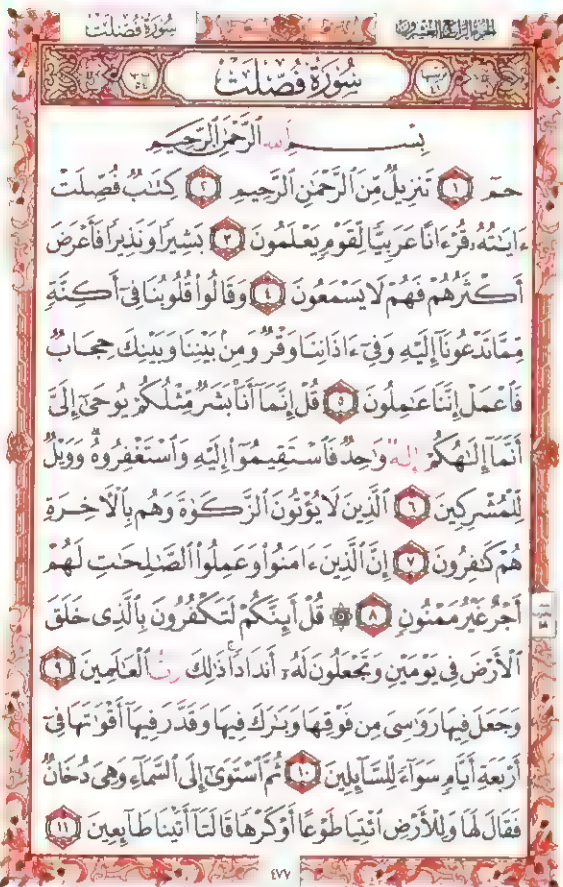 سُورَةُ فُصِّلَتْ الجُزْءُ الرَّابِعُ وَالعِشْرُونَ
سُورَةُ فُصِّلَتْ
بِسْمِ ٱللَّهِ ٱلرَّحْمَٰنِ ٱلرَّحِيمِ
حمٓ ١ تَنزِيلٌ مِّنَ ٱلرَّحْمَٰنِ ٱلرَّحِيمِ ٢ كِتَٰبٌ فُصِّلَتْ
ءَايَٰتُهُۥ قُرْءَانًا عَرَبِيًّا لِّقَوْمٍ يَعْلَمُونَ ٣ بَشِيرًا وَنَذِيرًا فَأَعْرَضَ
أَكْثَرُهُمْ فَهُمْ لَا يَسْمَعُونَ ٤ وَقَالُوا۟ قُلُوبُنَا فِىٓ أَكِنَّةٍ
مِّمَّا تَدْعُونَآ إِلَيْهِ وَفِىٓ ءَاذَانِنَا وَقْرٌ وَمِنۢ بَيْنِنَا وَبَيْنِكَ حِجَابٌ
فَٱعْمَلْ إِنَّنَا عَٰمِلُونَ ٥ قُلْ إِنَّمَآ أَنَا۠ بَشَرٌ مِّثْلُكُمْ يُوحَىٰٓ إِلَىَّ
أَنَّمَآ إِلَٰهُكُمْ إِلَٰهٌ وَٰحِدٌ فَٱسْتَقِيمُوٓا۟ إِلَيْهِ وَٱسْتَغْفِرُوهُ ۗ وَوَيْلٌ
لِّلْمُشْرِكِينَ ٦ ٱلَّذِينَ لَا يُؤْتُونَ ٱلزَّكَوٰةَ وَهُم بِٱلْءَاخِرَةِ
هُمْ كَٰفِرُونَ ٧ إِنَّ ٱلَّذِينَ ءَامَنُوا۟ وَعَمِلُوا۟ ٱلصَّٰلِحَٰتِ لَهُمْ
أَجْرٌ غَيْرُ مَمْنُونٍ ٨ ۞ قُلْ أَئِنَّكُمْ لَتَكْفُرُونَ بِٱلَّذِى خَلَقَ
ٱلْأَرْضَ فِى يَوْمَيْنِ وَتَجْعَلُونَ لَهُۥٓ أَندَادًا ۚ ذَٰلِكَ رَبُّ ٱلْعَٰلَمِينَ ٩
وَجَعَلَ فِيهَا رَوَٰسِىَ مِن فَوْقِهَا وَبَٰرَكَ فِيهَا وَقَدَّرَ فِيهَآ أَقْوَٰتَهَا فِىٓ
أَرْبَعَةِ أَيَّامٍ سَوَآءً لِّلسَّآئِلِينَ ١٠ ثُمَّ ٱسْتَوَىٰٓ إِلَى ٱلسَّمَآءِ وَهِىَ دُخَانٌ
فَقَالَ لَهَا وَلِلْأَرْضِ ٱئْتِيَا طَوْعًا أَوْ كَرْهًا قَالَتَآ أَتَيْنَا طَآئِعِينَ ١١
٤٧٧